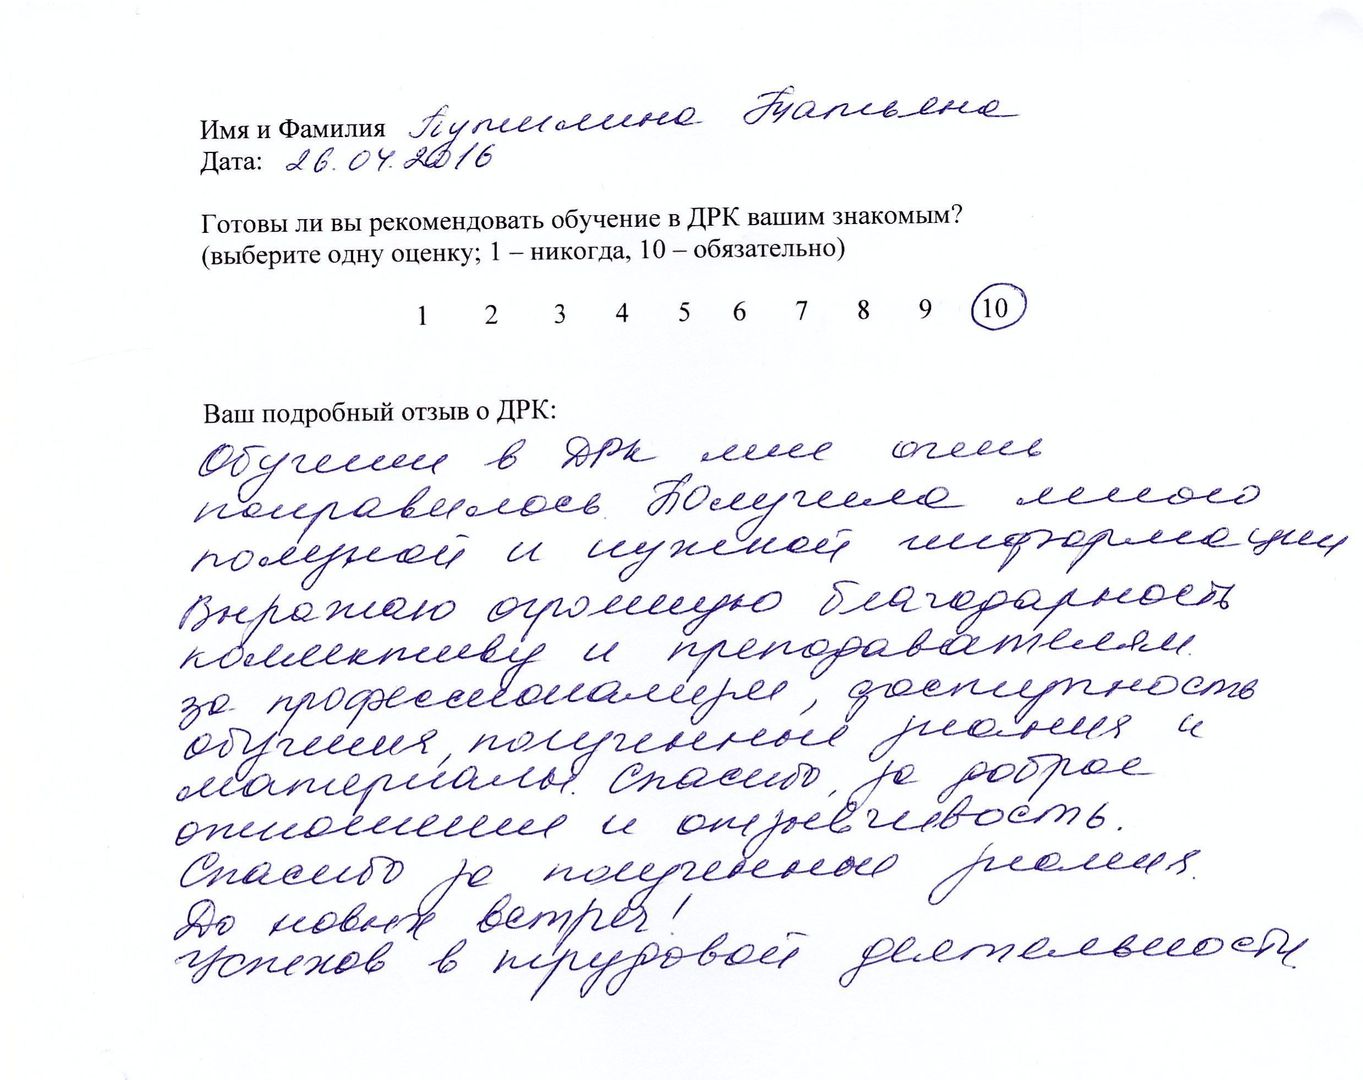 Имя и Фамилия Путилина Татьяна
Дата: 26.04.2016
Готовы ли вы рекомендовать обучение в ДРК вашим знакомым?
(выберите одну оценку; 1 – никогда, 10 – обязательно)
1 2 3 4 5 6 7 8 9 10
Ваш подробный отзыв о ДРК:
Обучение в ДРК мне очень
понравилось. Получила много
полезной и нужной информации
Выражаю огромную благодарность
коллективу и преподавателям.
за профессионализм, доступность
обучения, полученные знания и
материалы. Спасибо, за доброе
отношение и отзывчивость.
Спасибо за полученные знания.
До новых встреч!
Успехов в трудовой деятельности.